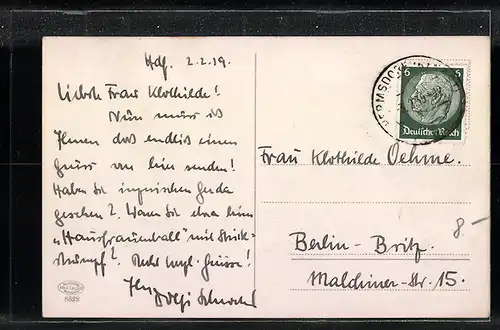 Hdf. 2.2.39.
Liebste Frau Klothilde!
Nun muss ich
Ihnen doch endlich einen
Gruss von hier senden!
Haben Sie inzwischen Gerda
gesehen? Waren Sie etwa beim
„Hausfrauenball" mit Strick-
strumpf? Recht herzl. Grüsse!
Ihr
8528
HERMSDORF
6 6
Deutsches Reich
Frau Klothilde Oehme.
Berlin-Britz.
Malchiner-Str. 15.
8-